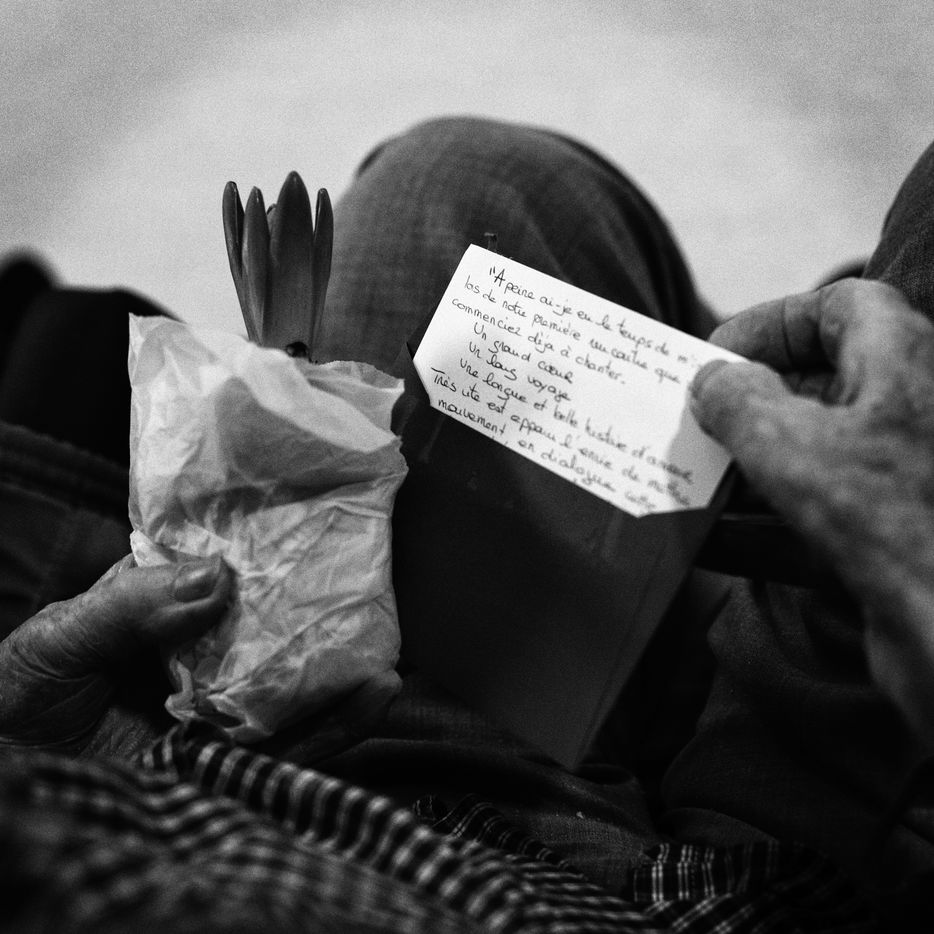 "A peine ai-je eu le temps de m'
las de notre première rencontre que
commenciez déjà à chanter.
Un grand cœur
un long voyage
une longue et belle histoire d'amour
Très vite est apparu l'envie de mettre
mouvement, en dialogue cette